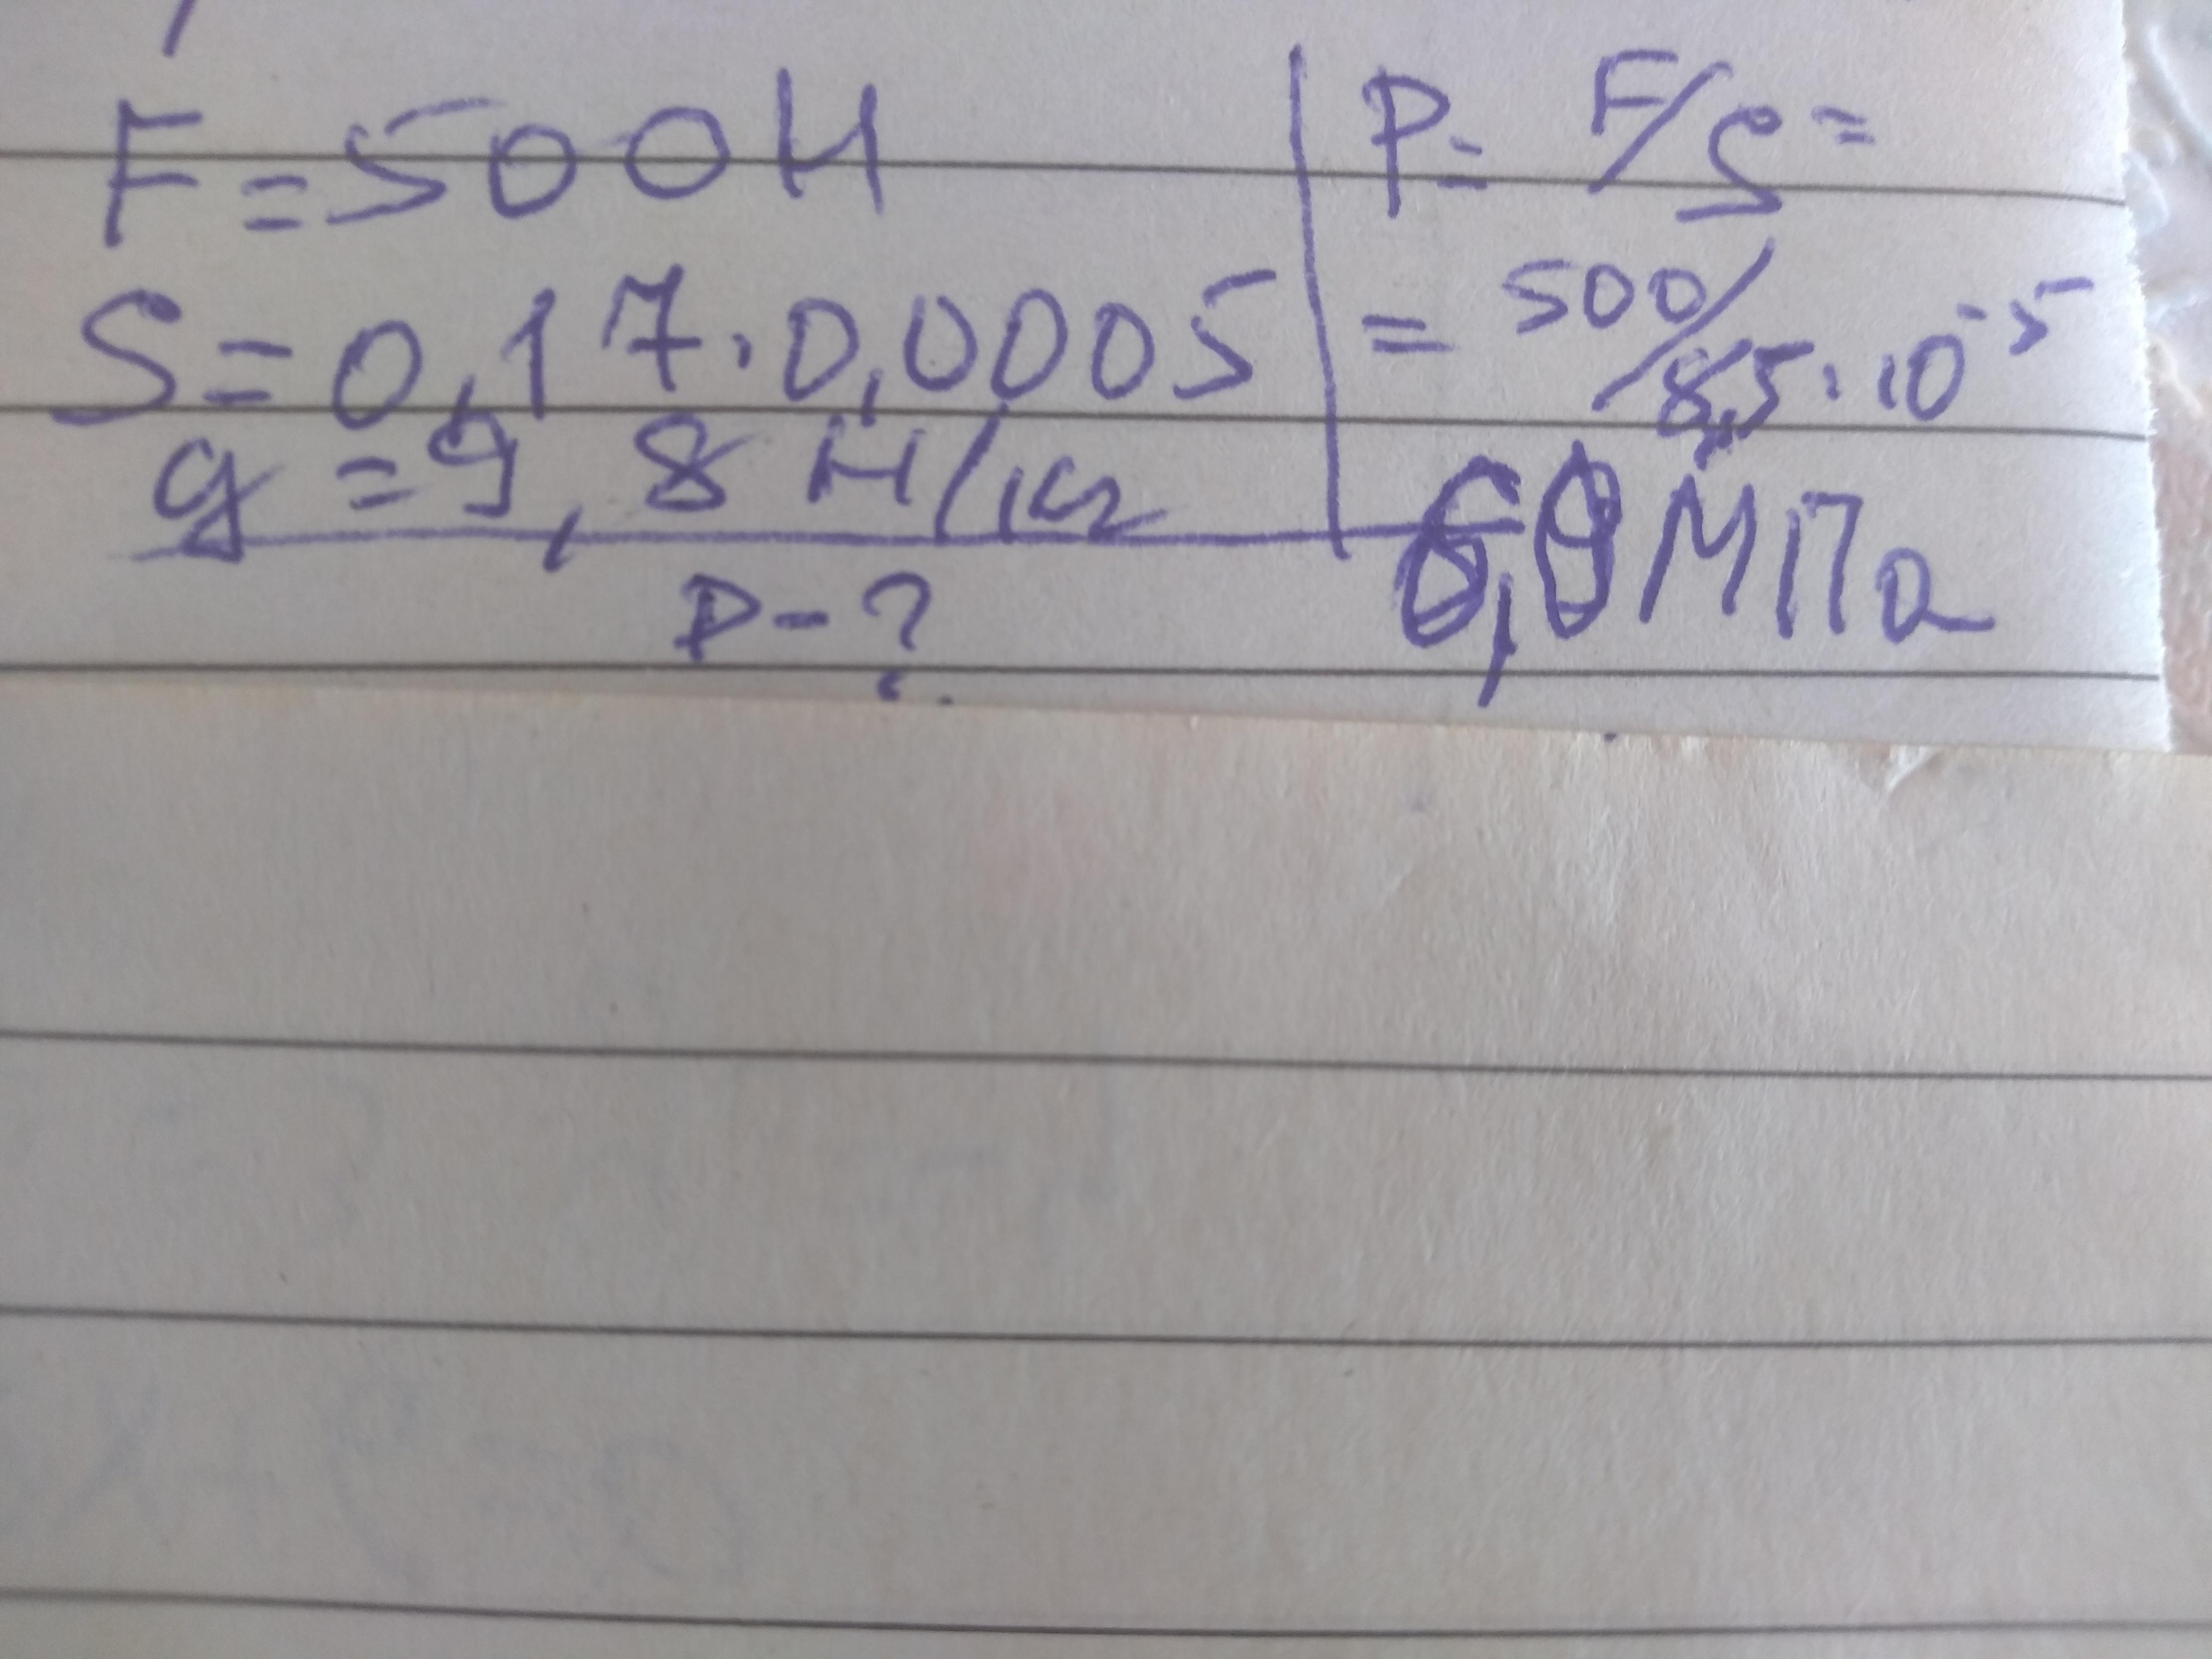 F=500Н
S=0,17·0,0005
g=9,8 Н/кг
P-?
P= F/S=
= 500/8,5·10⁻⁵
МПа